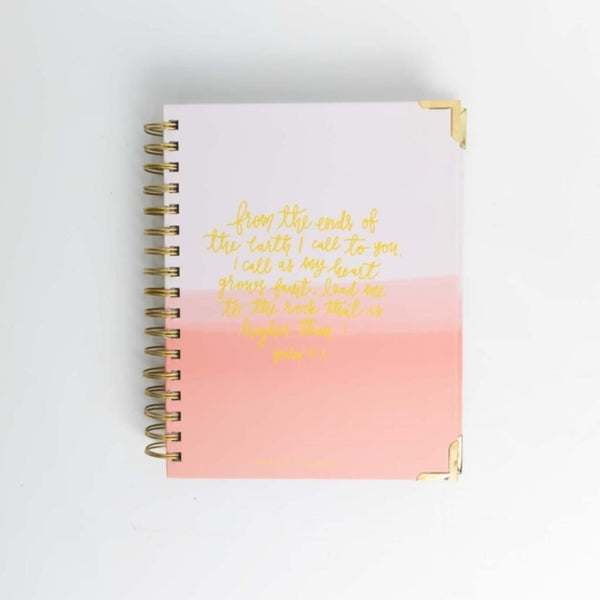 from the ends of
the earth I call to you,
I call as my heart
grows faint, lead me
to the rock that is
higher than I